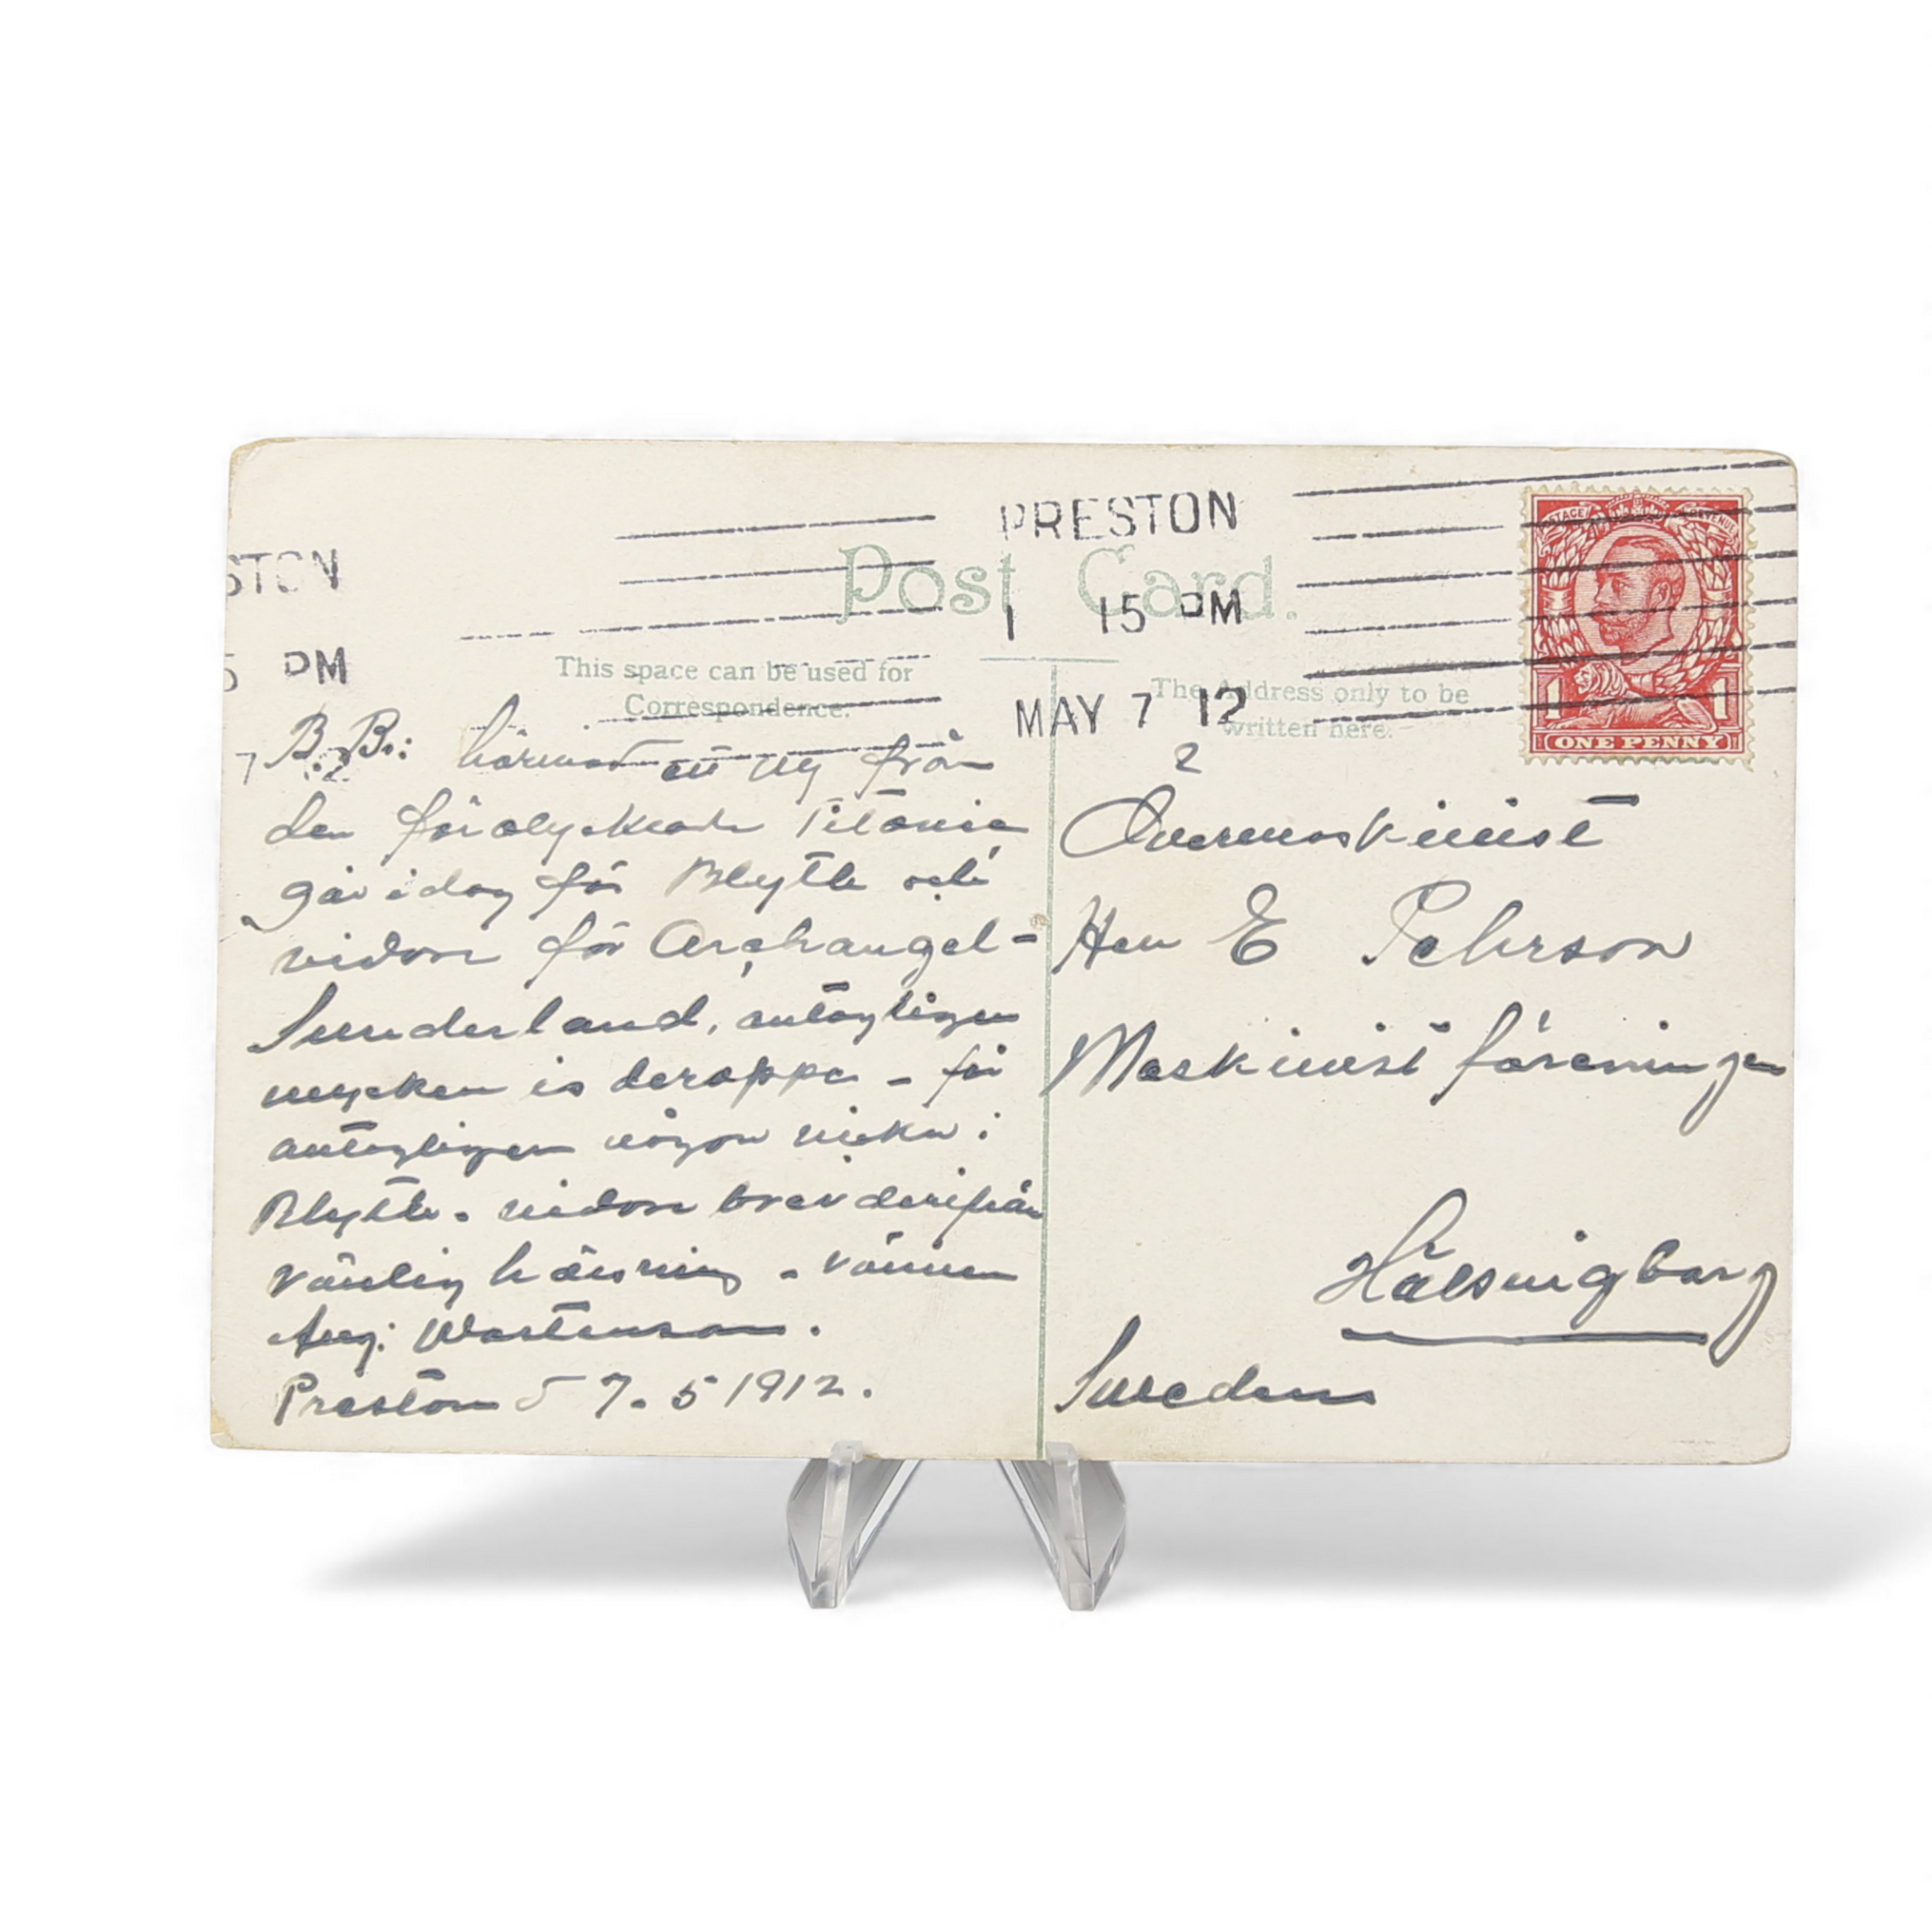 PRESTON
1 15 PM
MAY 7 12
STON
5 PM
7 12
Post Card.
This space can be used for
Correspondence.
The Address only to be
written here.
POSTAGE REVENUE
1 1
ONE PENNY
B. Br: härmed en vy från
den förolyckade Titanic
går i dag för Blyth och
vidare för Archangel -
Sunderland, antagligen
mycken is deroppe - får
antagligen någon vicka i
Blyth - vidare brev derifrån
vänlig hälsning - vännen
Aug: Mårtensson.
Preston d 7. 5 1912.
2
Övermaskinist
Herr E Pehrson
Maskinistföreningen
Hälsingborg
Sweden